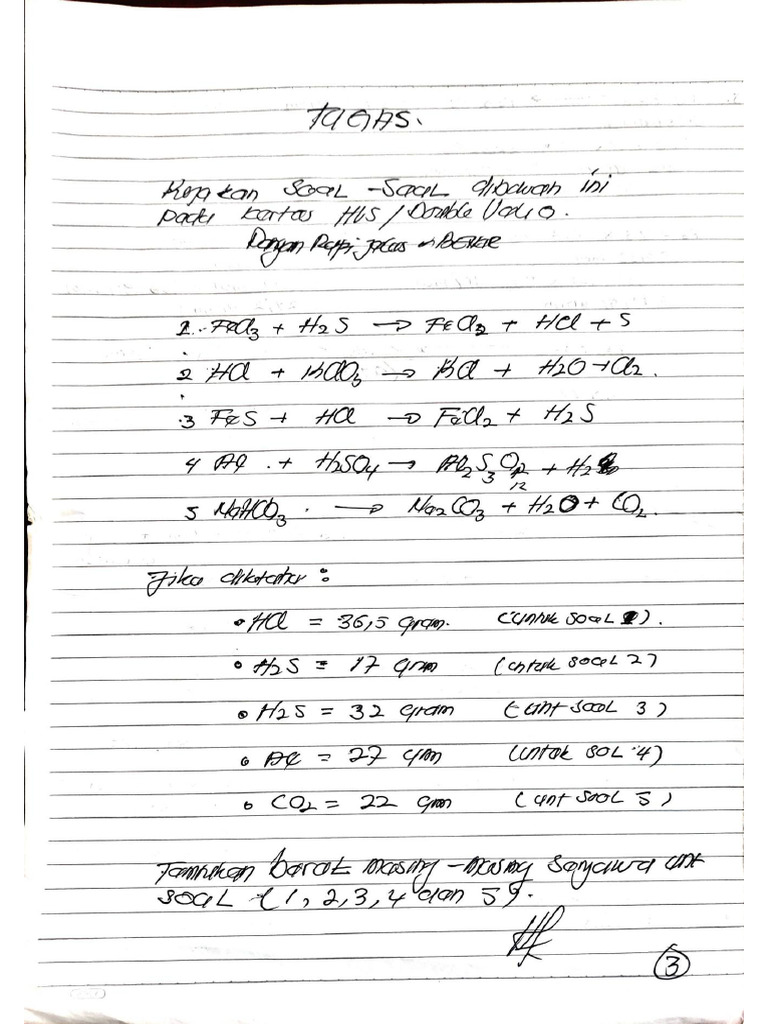 TUGAS.
Kerjakan Soal-Soal dibawah ini
pada kertas HVS/Double Volio.
Dengan Rapi jelas & BENAR
1. FeCl3 + H2S → FeCl2 + HCl + S
2 HCl + KClO3 → KCl + H2O + Cl2.
3 FeS + HCl → FeCl2 + H2S
4 Al + H2SO4 → Al2S3O12 + H2
5 NaHCO3 → Na2CO3 + H2O + CO2.
Jika diketahui :
• HCl = 36,5 gram. (untuk soal 1).
• H2S = 17 gram (untuk soal 2)
• H2S = 32 gram (unt soal 3)
• Al = 27 gram (untuk sol 4)
• CO2 = 22 gram (unt soal 5)
Tentukan berat masing-masing senyawa unt
soal (1, 2, 3, 4 dan 5).
3